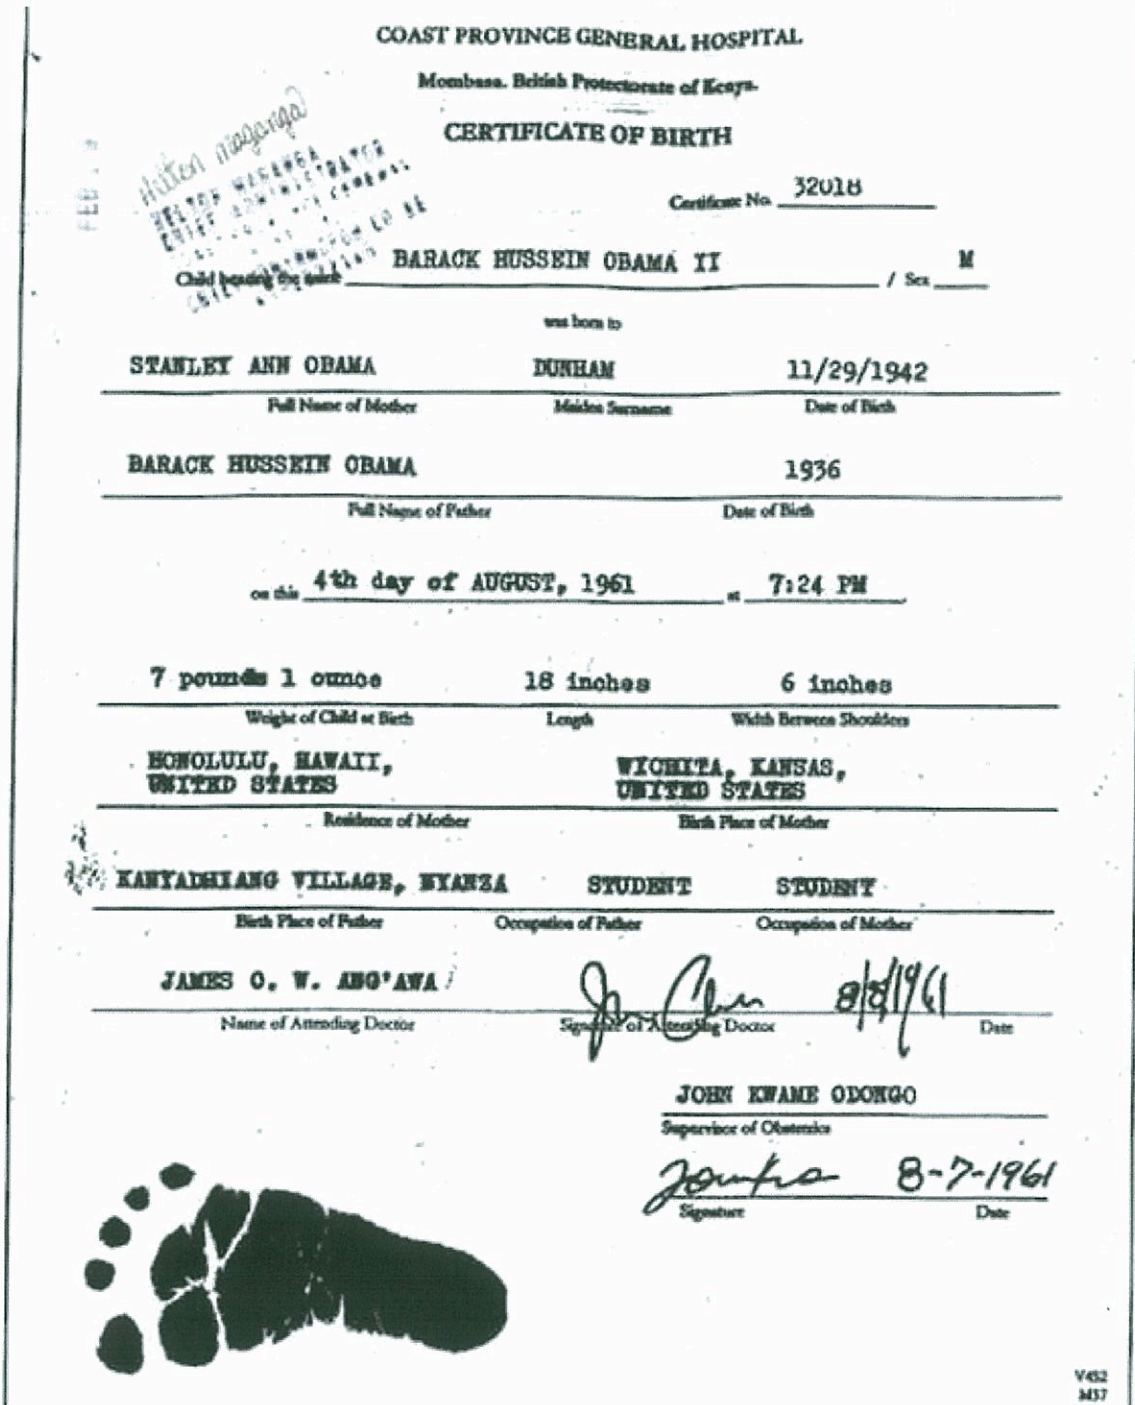 COAST PROVINCE GENERAL HOSPITAL
Mombasa. British Protectorate of Kenya.
CERTIFICATE OF BIRTH
FEB.
Certificate No. 32018
CHIEF ADMINISTRATOR
Child bearing the name BARACK HUSSEIN OBAMA II / Sex M
was born to
STANLEY ANN OBAMA DUNHAM 11/29/1942
Full Name of Mother Maiden Surname Date of Birth
BARACK HUSSEIN OBAMA 1936
Full Name of Father Date of Birth
on this 4th day of AUGUST, 1961 at 7:24 PM
7 pounds 1 ounce 18 inches 6 inches
Weight of Child at Birth Length Width Between Shoulders
HONOLULU, HAWAII, WICHITA, KANSAS,
UNITED STATES UNITED STATES
Residence of Mother Birth Place of Mother
KANYADHIANG VILLAGE, NYANZA STUDENT STUDENT
Birth Place of Father Occupation of Father Occupation of Mother
JAMES O. W. ANG'AWA 8/8/1961
Name of Attending Doctor Signature of Attending Doctor Date
JOHN KWAME ODONGO
Supervisor of Obstetrics
8-7-1961
Signature Date
V452
M37